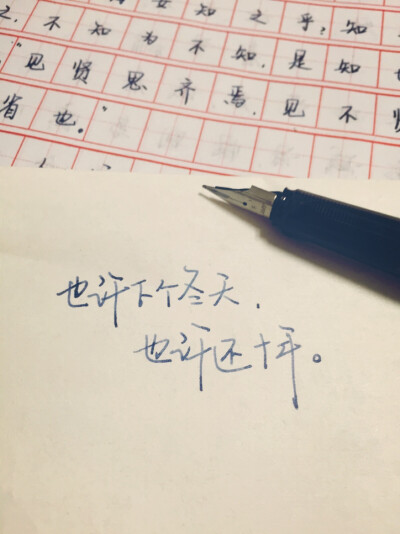 女知之乎;知
之,不知为不知,是知
“见贤思齐焉,见不贤
省也。”
也许下个冬天,
也许还十年。